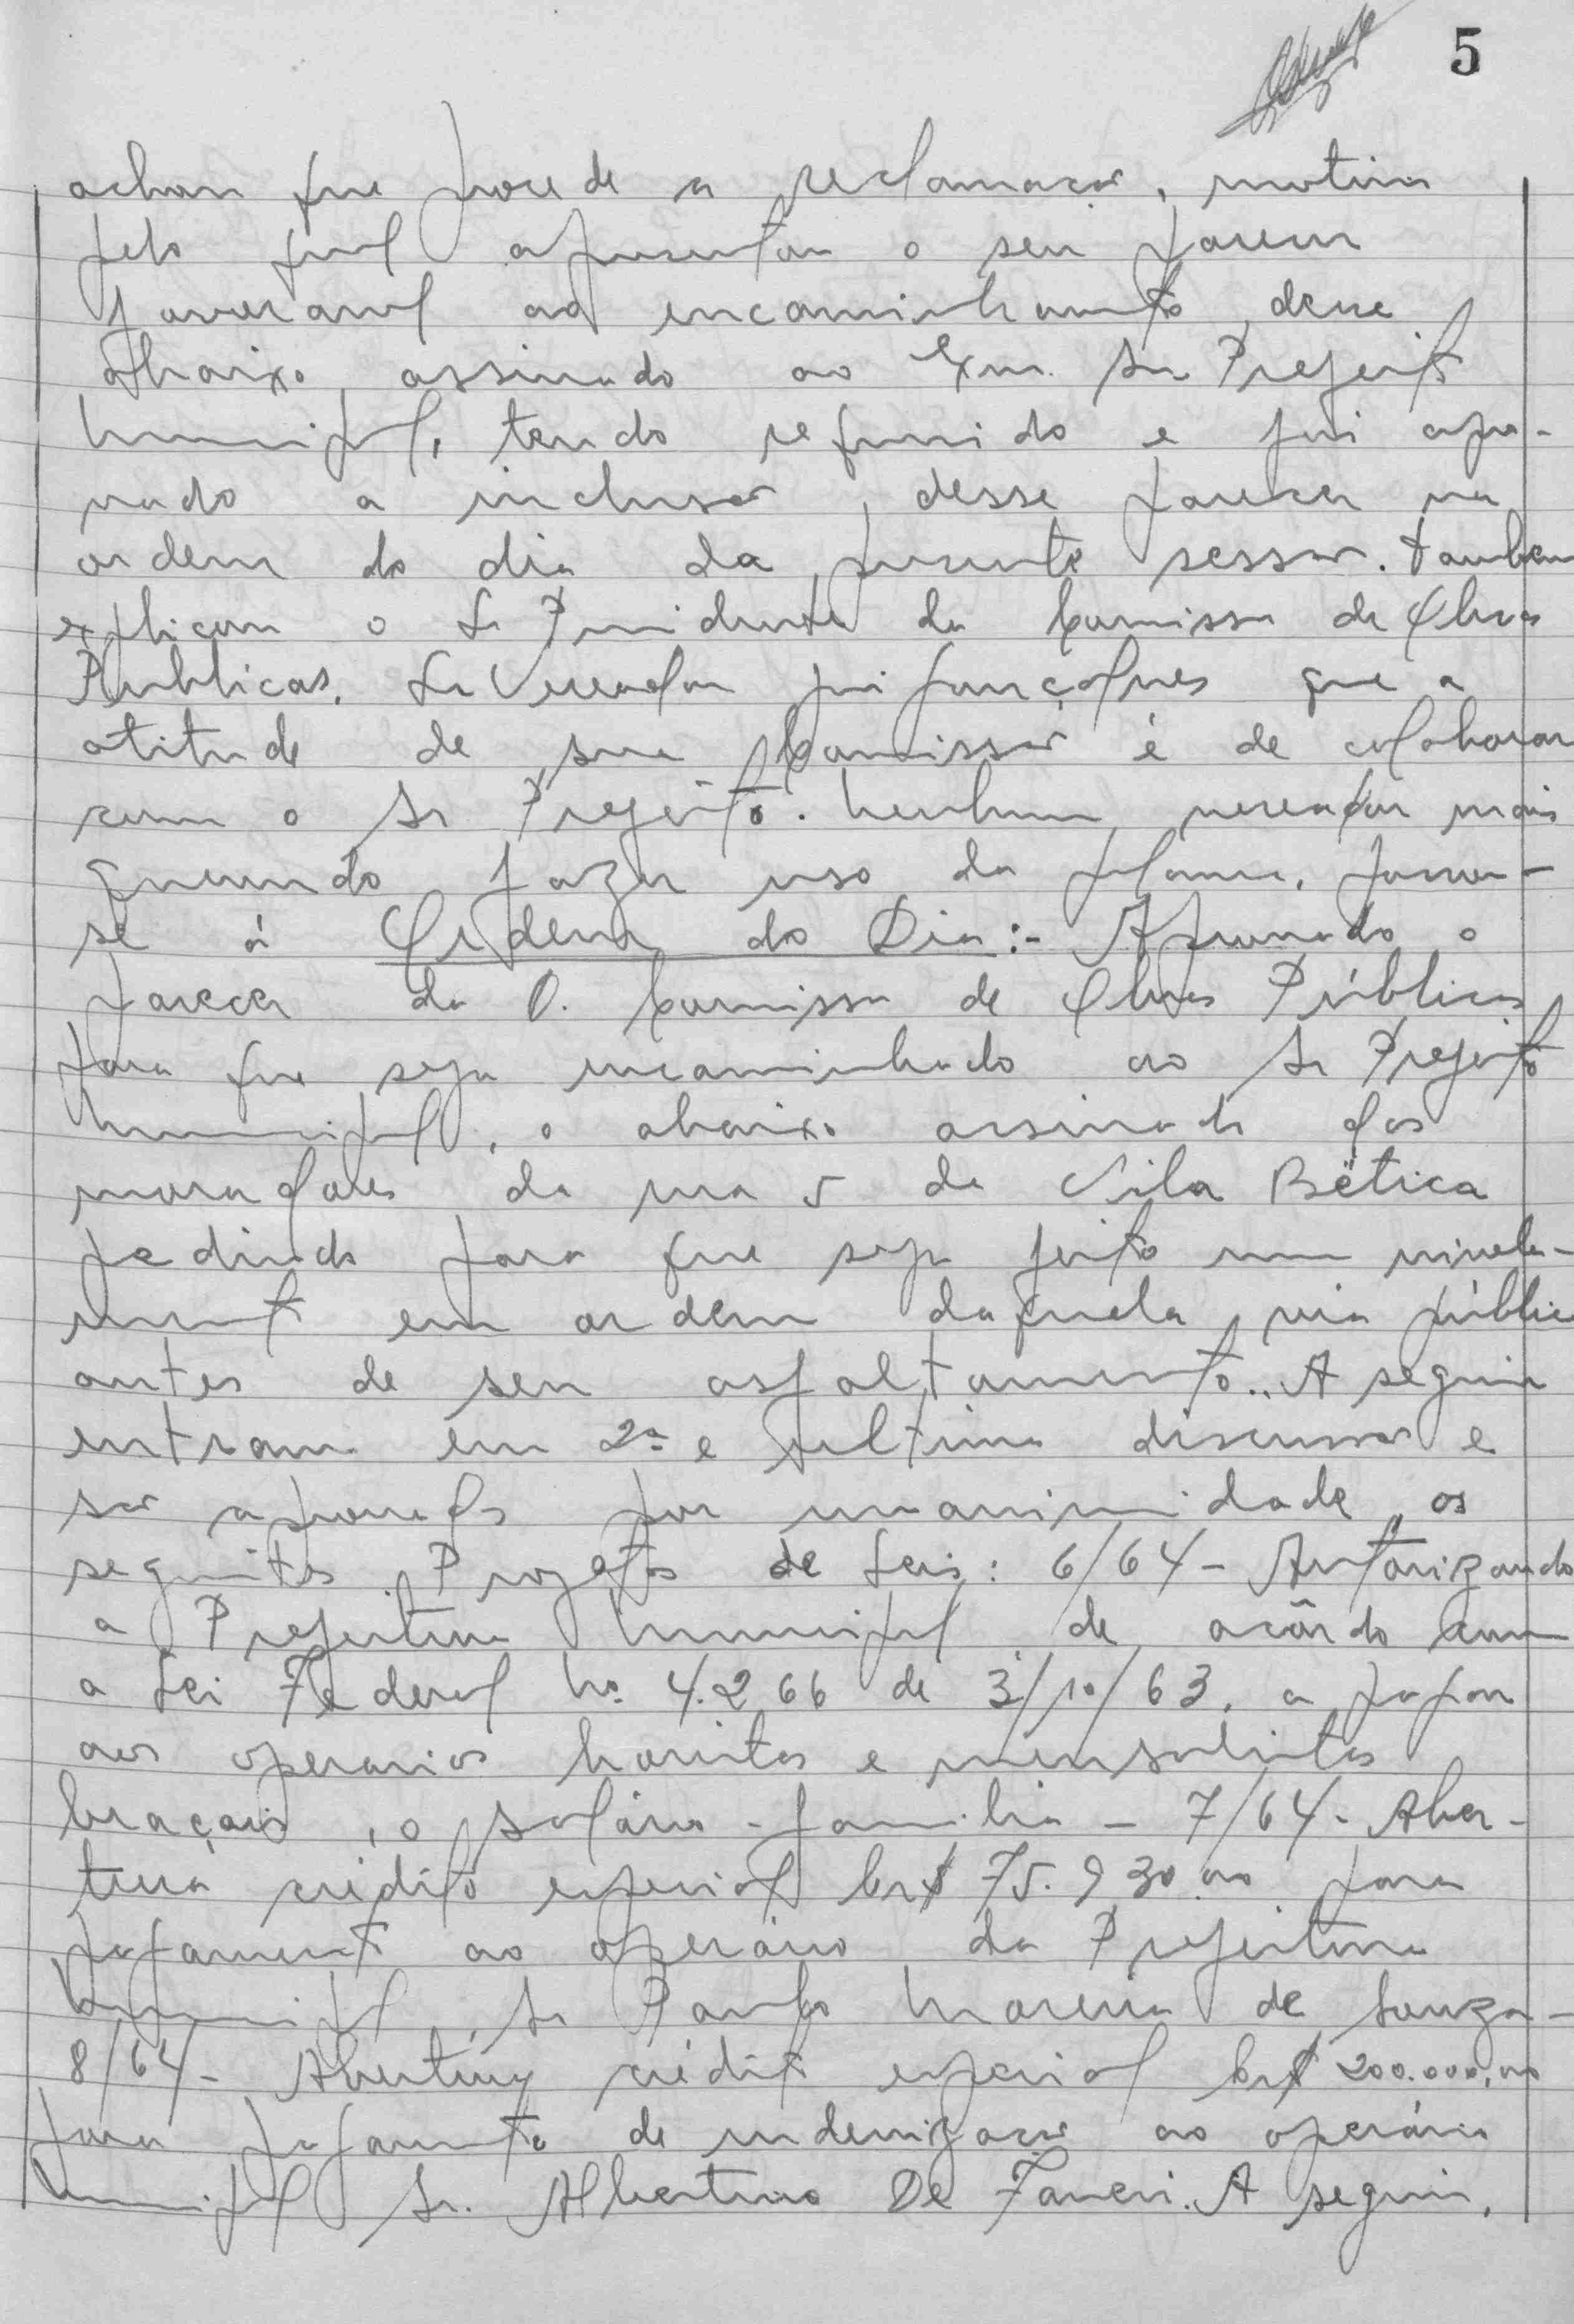 5
achou que procede a reclamação, motivo
pelo qual apresentou o seu parecer
favoravel ao encaminhamento desse
abaixo assinado ao Exm. Sr Prefeito
Municipal, tendo requerido e foi apro-
vado a inclusão desse parecer na
ordem do dia da presente sessão. Tambem
explicou o Sr Presidente da Comissão de Obras
Publicas, Sr Vereador que a
atitude de sua Comissão é de colaborar
com o Sr Prefeito. Nenhum vereador mais
querendo fazer uso da palavra, passou-
se á Ordem do Dia:- Aprovado o
parecer da D. Comissão de Obras Públicas
para que seja encaminhado ao Sr Prefeito
Municipal, o abaixo assinado dos
moradores da rua 5 da Vila Bética
pedindo para que seja feito um nivela-
mento em ordem daquela via pública
antes de seu asfaltamento.. A seguir
entram em 2ª e ultima discussão e
são aprovados por unanimidade os
seguintes Projetos de Leis: 6/64 - Autorizando
a Prefeitura Municipal de acôrdo com
a Lei Federal Nº 4.266 de 3/10/63, a pagar
aos operarios horistas e mensalistas
braçais, o salário-familia - 7/64 - Aber-
tura crédito especial Cr$ 75.930,00 para
pagamento ao operário da Prefeitura
Municipal, Sr Paulo Moreira de Souza -
8/64 - Abertura crédito especial Cr$ 200.000,00
para pagamento de indenização ao operário
Municipal Sr. Albertino De Faveri. A seguir,